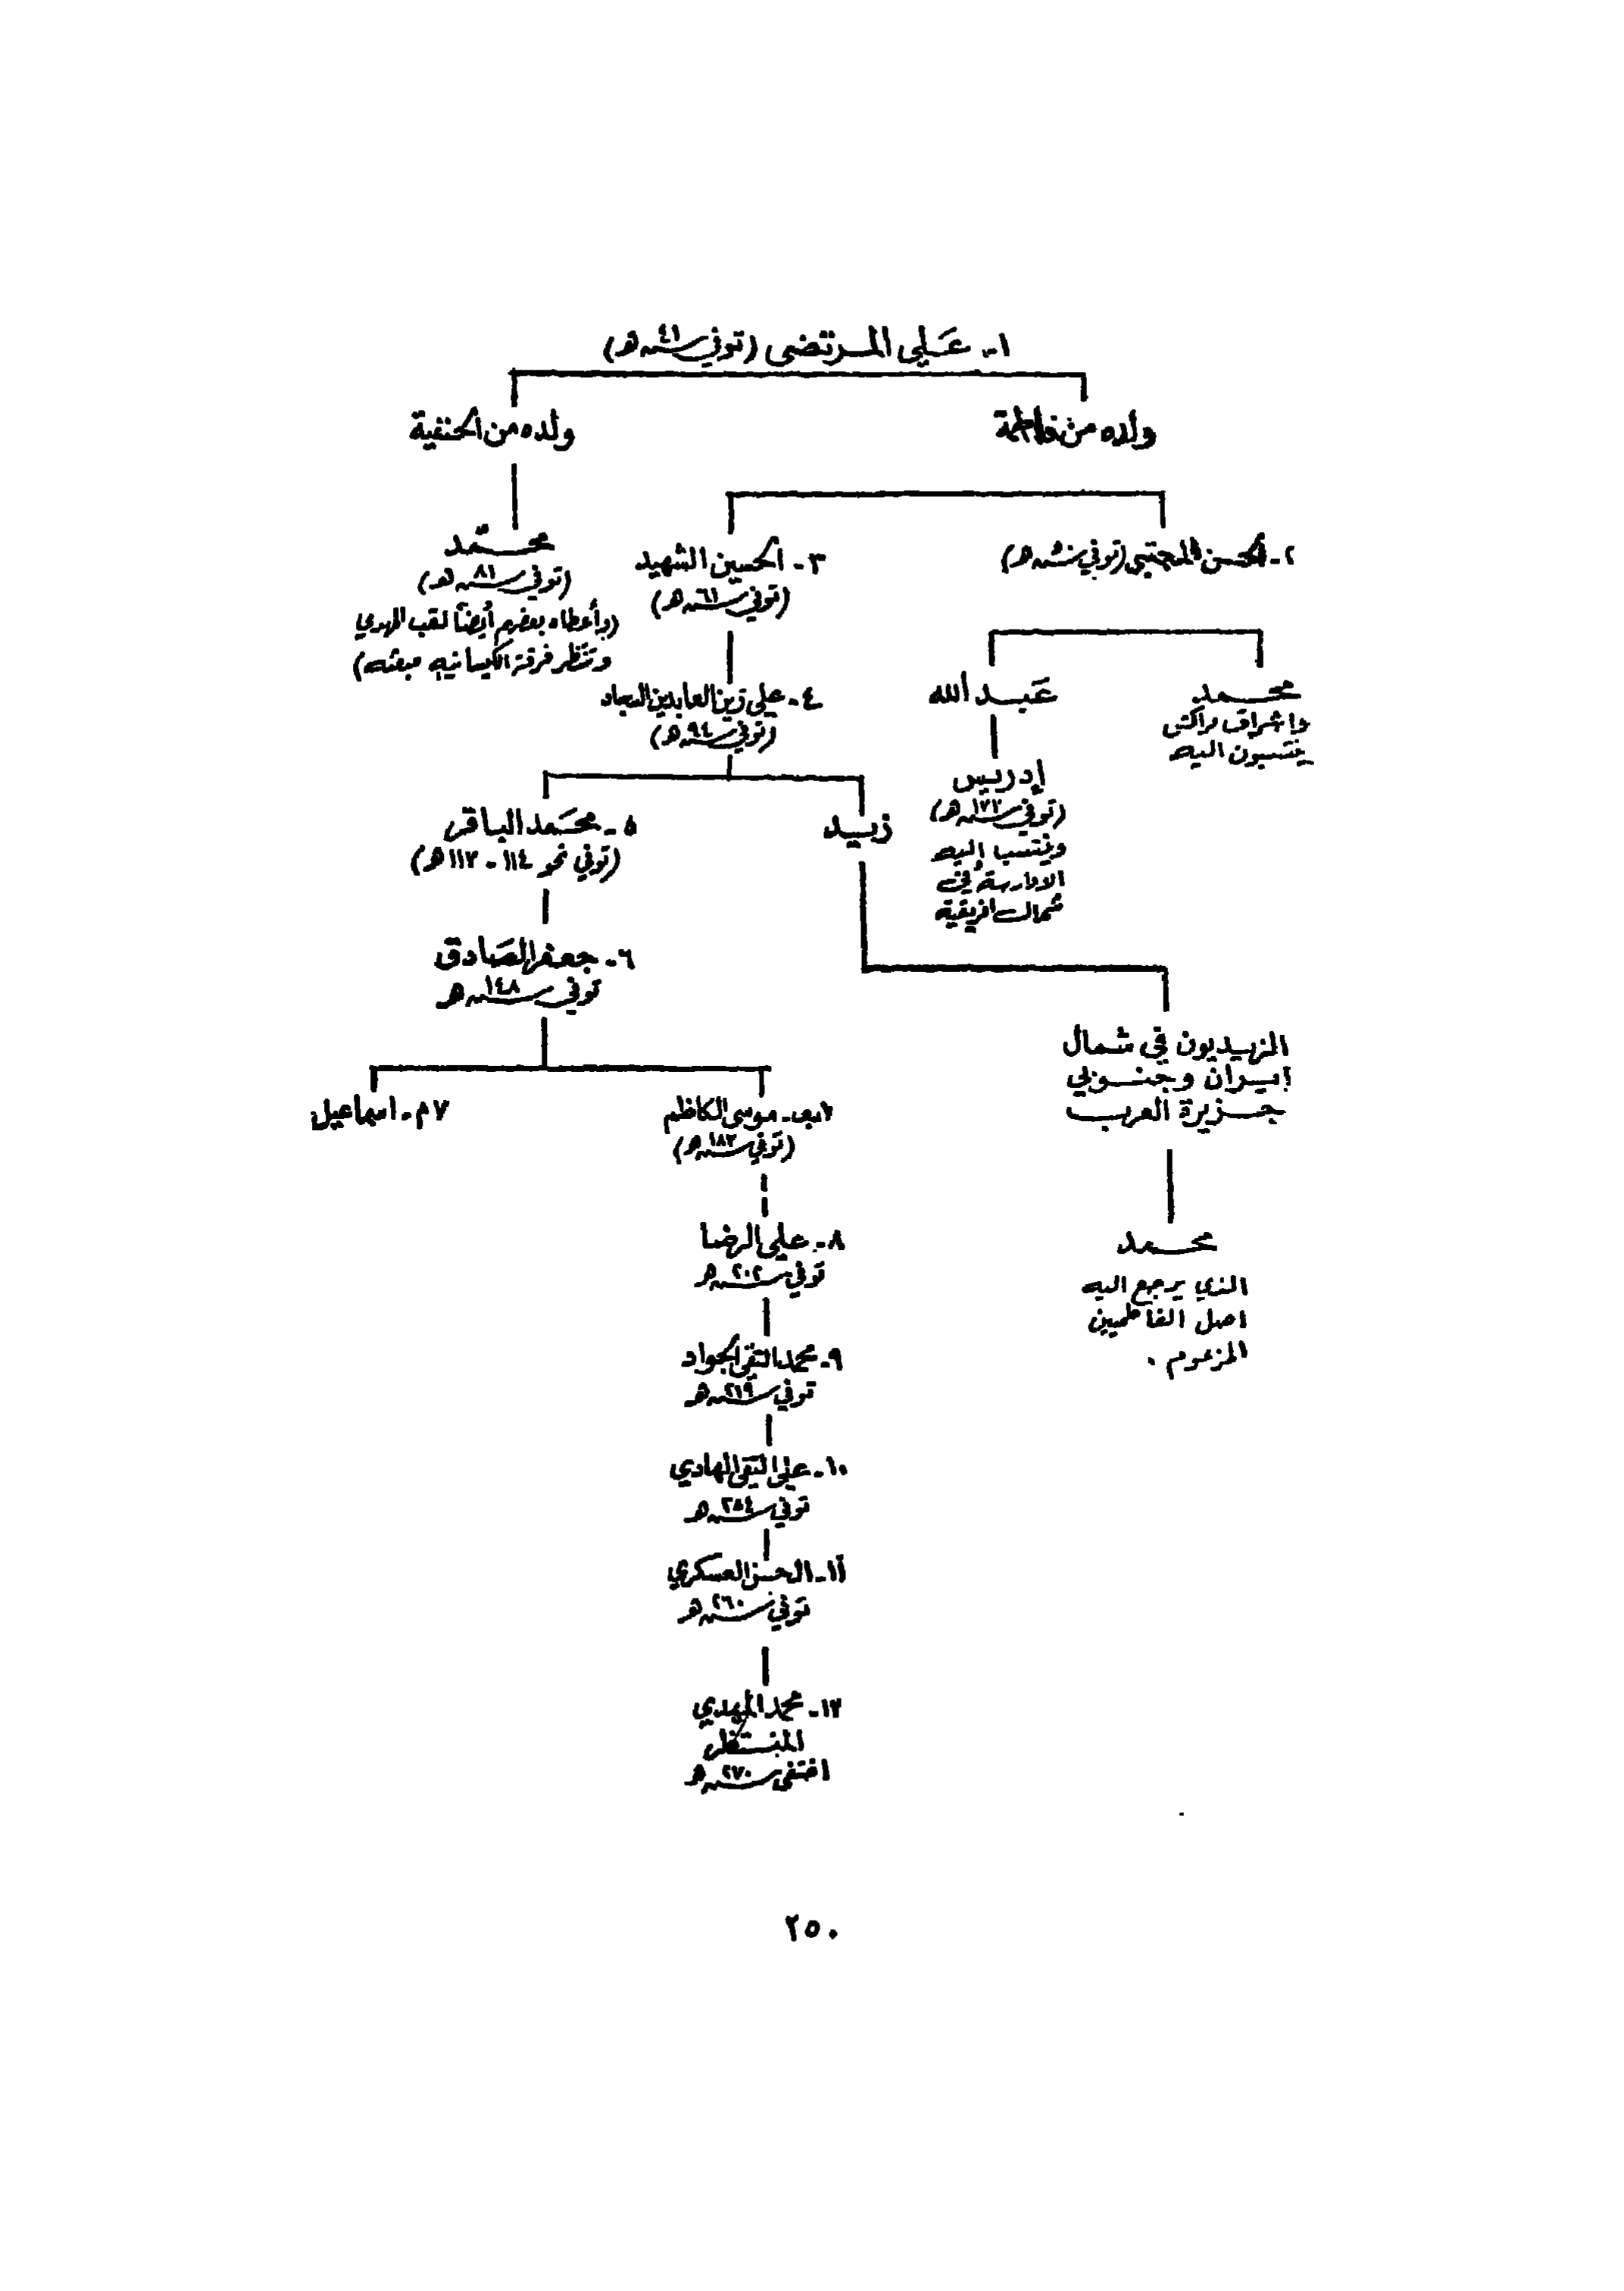 ١- عَلي المرتضى (توفي سنة ٤١ هـ)
ولده من فاطمة
ولده من الحنفية
٢- الحسن المجتبى (توفي سنة هـ)
٣- الحسين الشهيد
(توفي سنة ٦١ هـ)
محمّد
(توفي سنة ٨١ هـ)
(وأعطاه بعضهم أيضاً لقب المهدي
وتنتظر فرقة الكيسانيه مبعثه)
محمد
واشراف مراكش
ينتسبون اليه
عَبد الله
إدريس
(توفي سنة هـ)
وينتسب اليه
الادارسة في
شمال افريقية
٤- علي زين العابدين السجاد
(توفي سنة ٩٤ هـ)
زيد
٥- محَمد الباقر
(توفي نحو ١١٤ - ١١٣ هـ)
٦- جعفر الصَادق
توفي سنة ١٤٨ هـ
الزيديون في شمال
ايران وجنوبي
جزيرة العرب
محمد
الذي يرجع اليه
اصل الفاطميين
المزعوم .
٧ب- موسى الكاظم
(توفي سنة ١٨٣ هـ)
٧م- اسماعيل
٨- علي الرضا
توفي سنة هـ
٩- محمد التقي الجواد
توفي سنة ٢١٩ هـ
١٠- علي النقي الهادي
توفي سنة ٢٥٤ هـ
١١- الحسن العسكري
توفي سنة ٢٦٠ هـ
١٢- محمد المهدي
المنتظر
اختفى سنة ٢٧٠ هـ
٢٥٠